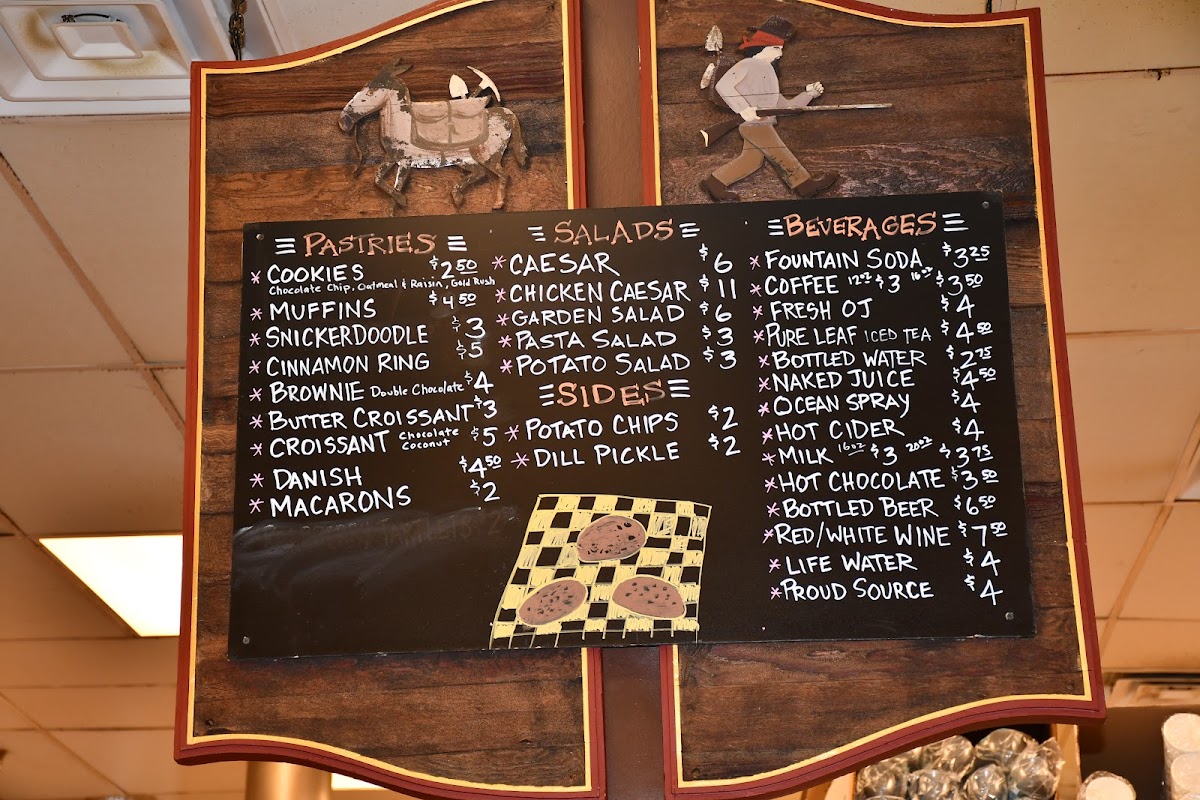 PASTRIES
* COOKIES $2.50
Chocolate Chip, Oatmeal & Raisin, Gold Rush
* MUFFINS $4.50
* SNICKERDOODLE $3
* CINNAMON RING $5
* BROWNIE Double Chocolate $4
* BUTTER CROISSANT $3
* CROISSANT Chocolate Coconut $5
* DANISH $4.50
* MACARONS $2
SALADS
* CAESAR $6
* CHICKEN CAESAR $11
* GARDEN SALAD $6
* PASTA SALAD $3
* POTATO SALAD $3
SIDES
* POTATO CHIPS $2
* DILL PICKLE $2
BEVERAGES
* FOUNTAIN SODA $3.25
* COFFEE 12oz $3 16oz $3.50
* FRESH OJ $4
* PURE LEAF ICED TEA $4.50
* BOTTLED WATER $2.75
* NAKED JUICE $4.50
* OCEAN SPRAY $4
* HOT CIDER $4
* MILK 16oz $3 20oz $3.75
* HOT CHOCOLATE $3.50
* BOTTLED BEER $6.50
* RED/WHITE WINE $7.50
* LIFE WATER $4
* PROUD SOURCE $4